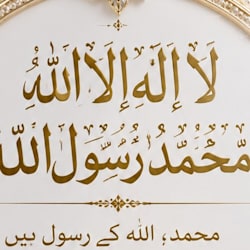 لَا إِلٰهَ إِلَّا اللّٰهُ
مُحَمَّدٌ رَّسُوْلُ اللّٰهِ
محمد، اللہ کے رسول ہیں